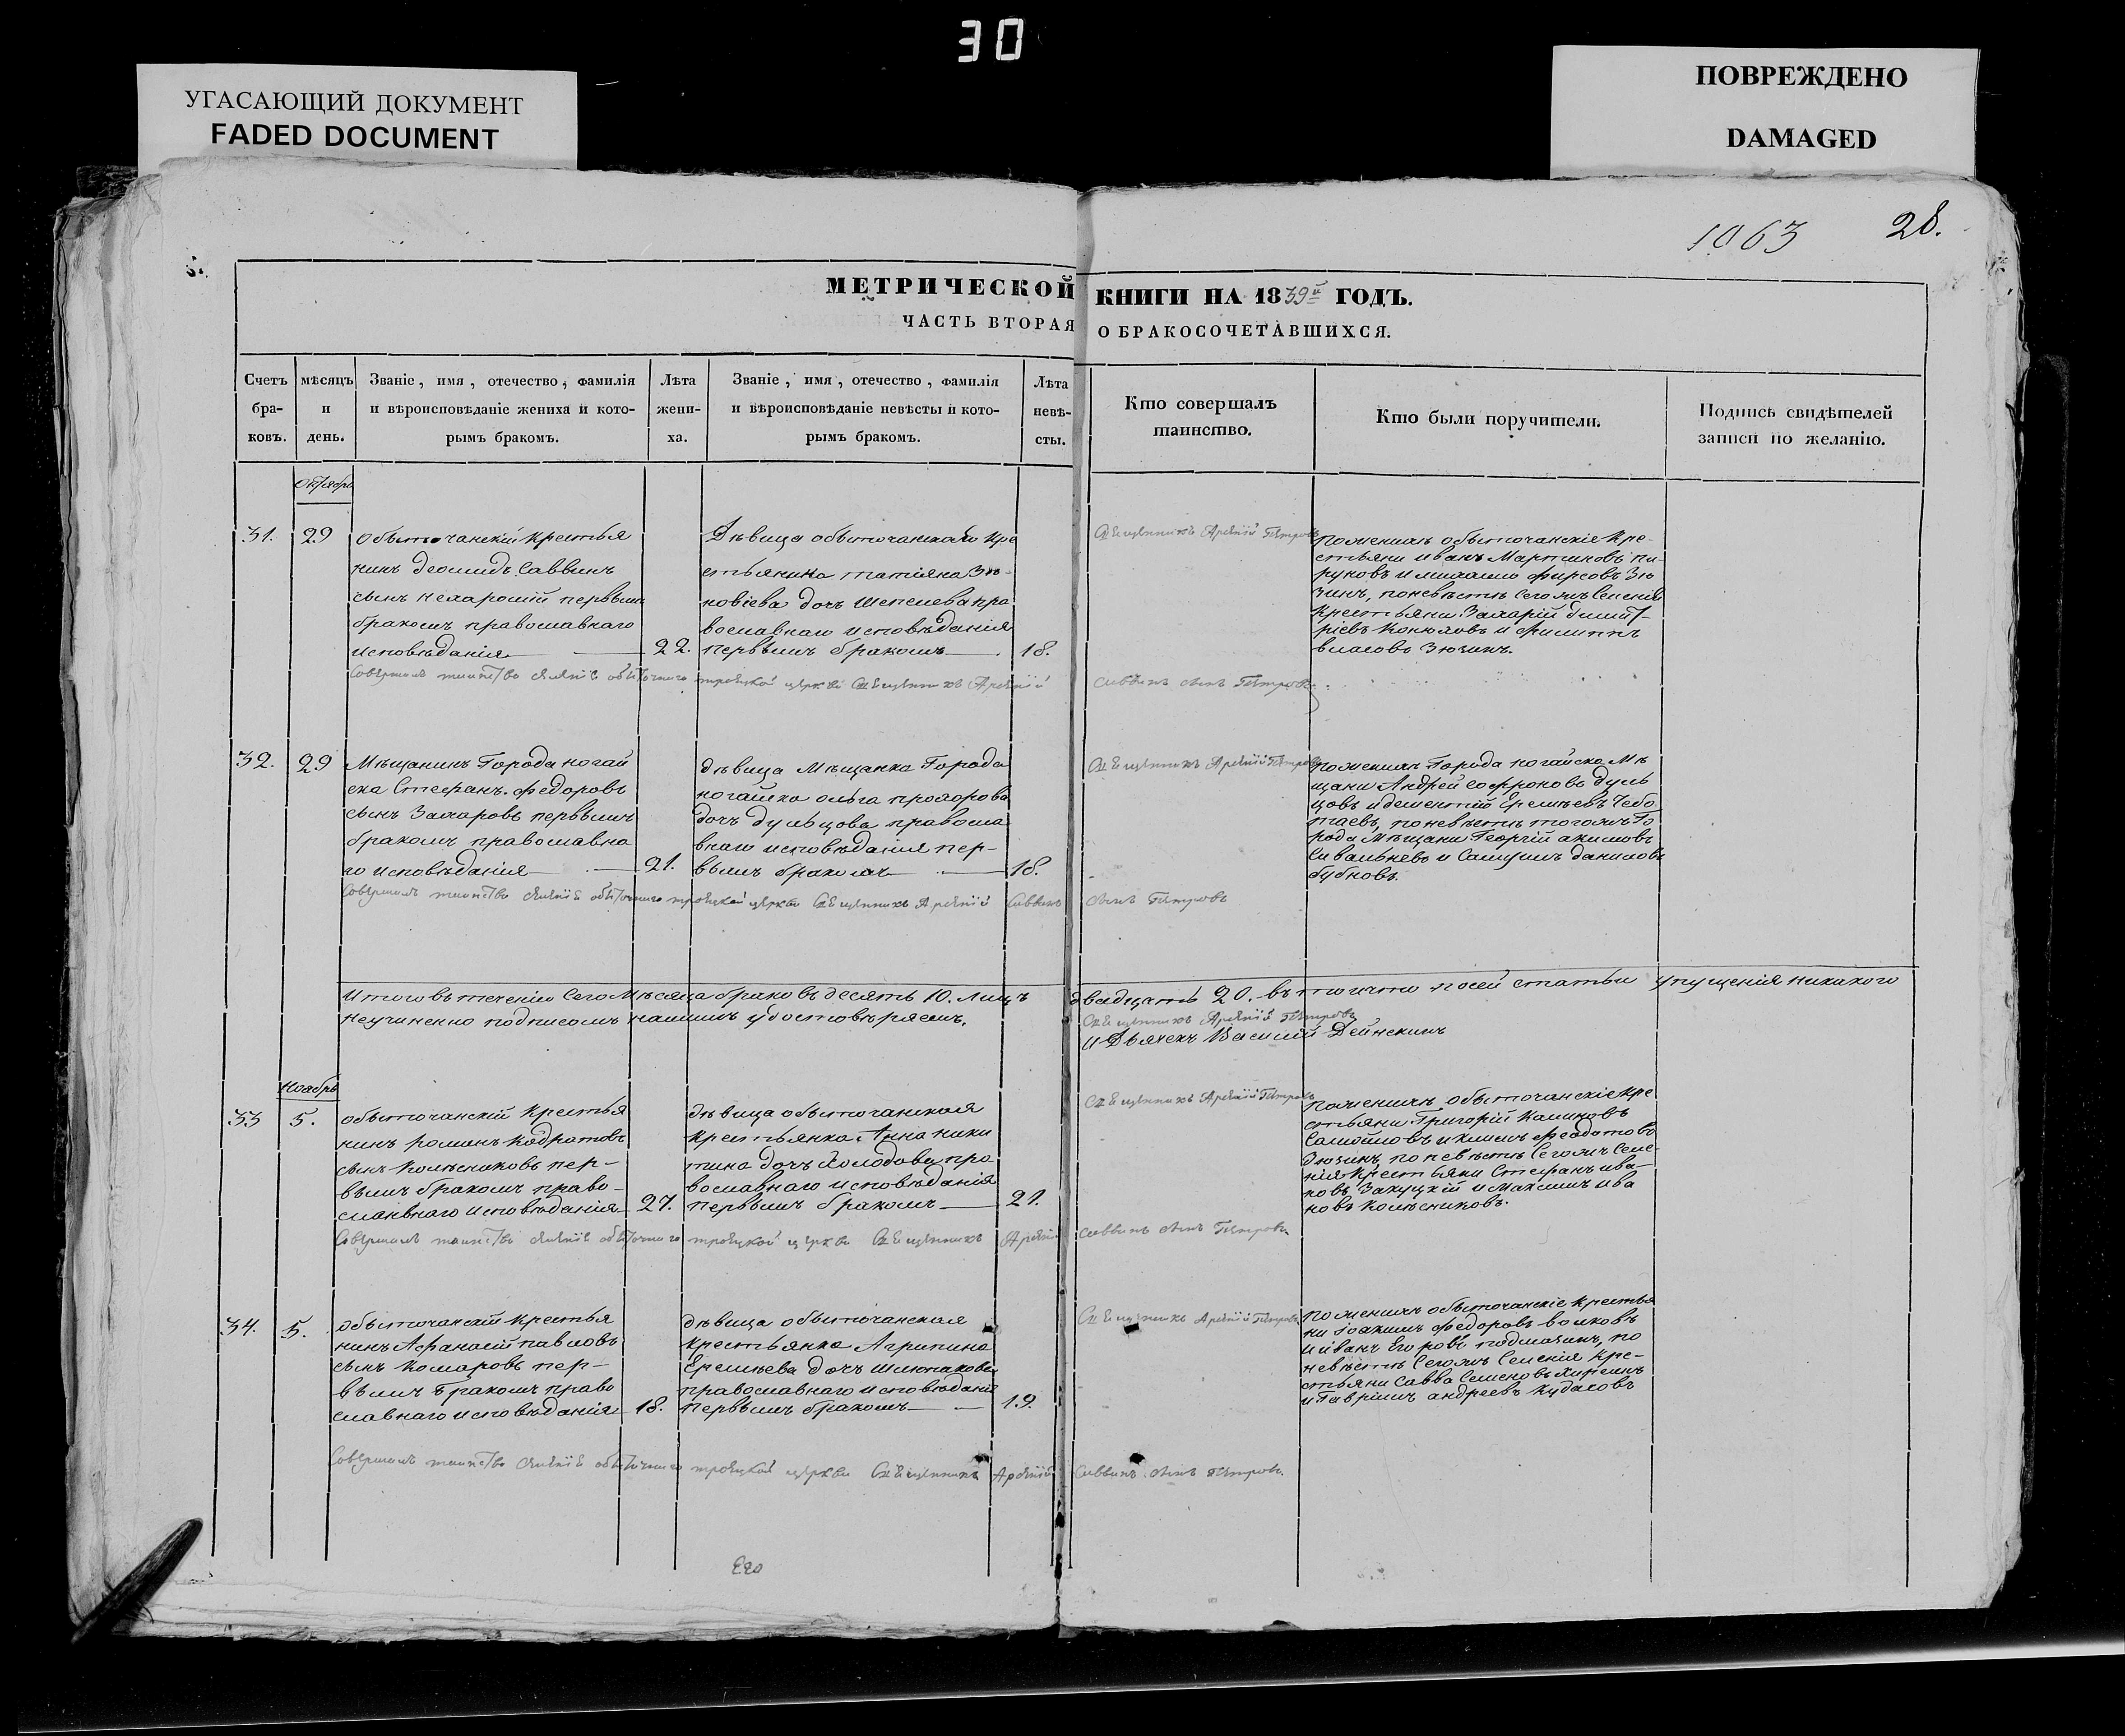 30
УГАСАЮЩИЙ ДОКУМЕНТ
FADED DOCUMENT
ПОВРЕЖДЕНО
DAMAGED
1063 28.
МЕТРИЧЕСКОЙ КНИГИ НА 1839й ГОДЪ.
ЧАСТЬ ВТОРАЯ О БРАКОСОЧЕТАВШИХСЯ.
Счетъ бра-ковъ.
мѣсяцъ и день.
Званіе, имя, отечество, фамилія
и вѣроисповѣданіе жениха и кото-
рымъ бракомъ.
Лѣта жени-ха.
Званіе, имя, отечество, фамилія
и вѣроисповѣданіе невѣсты и кото-
рымъ бракомъ.
Лѣта невѣ-сты.
Кто совершалъ
таинство.
Кто были поручители.
Подпись свидѣтелей
записи по желанію.
Октябрь
31. 29
Обыточанскій крестья
нинъ Деомидъ Саввинъ
сынъ Нехарошій первымъ
бракомъ православнаго
исповѣданія 22.
Дѣвица обыточанскаго кре
стьянина татіяна Зѣ
новіева дочь Шепелева пра
вославнаго исповѣданія
первымъ бракомъ 18.
Священникъ Арсеній Петровъ
по женихѣ обыточанскіе кре-
стьяни иванъ Мартиновъ пи
руновъ и михаило фирсовъ Зю
зинъ, по невѣстѣ сегожъ селенія
крестьяни Захарій димит-
ріевъ Конюховъ и филиппъ
власовъ Зюзинъ.
Совершалъ таинство селенія обыточнаго троецкой церкви Священникъ Арсеній Саввинъ сынъ Петровъ
32. 29
Мѣщанинъ Города ногай
ска Стефанъ федоровъ
сынъ Захаровъ первымъ
бракомъ православна
го исповѣданія 21.
дѣвица Мѣщанка Города
ногайска ольга прохорова
дочь дульцова правосла
внаго исповѣданія пер-
вымъ бракомъ 18.
Священникъ Арсеній Петровъ
по женихѣ Города ногайска Мѣ
щани Андрей софроновъ дуль
цовъ и дементій Еремѣевъ Чебо
таевъ, по невѣстѣ тогожъ Го
рода Мѣщани Георгій акимовъ
и Самуилъ даниловъ
бубновъ.
Совершалъ таинство селенія обыточнаго троецкой церкви Священникъ Арсеній Саввинъ сынъ Петровъ
Итого въ теченіи сего Мѣсяца браковъ десять 10. лицъ двадцать 20. въ точти по сей статьи упущенія никакого
неучиненно подписомъ нашимъ удостовѣряемъ.
Священникъ Арсеній Петровъ
И Дьячекъ Василій Дейнекинъ
Ноябрь
33 5.
обыточанскій крестья
нинъ романъ кодратовъ
сынъ колѣсниковъ пер-
вымъ бракомъ право-
славнаго исповѣданія 27.
дѣвица обыточанская
крестьянка Анна ники
тина дочь холодова пра
вославнаго исповѣданія
первымъ бракомъ 21.
Священникъ Арсеній Петровъ
по женихѣ обыточанскіе кре
стьяни Григорій Калиновъ
Самойловъ и климъ феодотовъ
Дюзинъ по невѣстѣ сегожъ селе-
нія крестьяни Стефанъ ива-
новъ Закуцкій и Максимъ ива
новъ колѣсниковъ.
Совершалъ таинство селенія обыточнаго троецкой церкви Священникъ Арсеній Саввинъ сынъ Петровъ
34. 5.
обыточанскій крестья
нинъ Афанасій павловъ
сынъ комаровъ пер-
вымъ бракомъ право
славнаго исповѣданія 18.
дѣвица обыточанская
крестьянка Агрипина
Еремѣева дочь шлюпакова
православнаго исповѣданія
первымъ бракомъ 19.
Священникъ Арсеній Петровъ
по женихѣ обыточанскіе крестья
ни іоакимъ федоровъ волковъ
и іванъ Егоровъ подмазинъ, по
невѣстѣ сегожъ селенія кре-
стьяни Савва Семеновъ
и Гавріилъ андреевъ кудасовъ
Совершалъ таинство селенія обыточнаго троецкой церкви Священникъ Арсеній Саввинъ сынъ Петровъ.